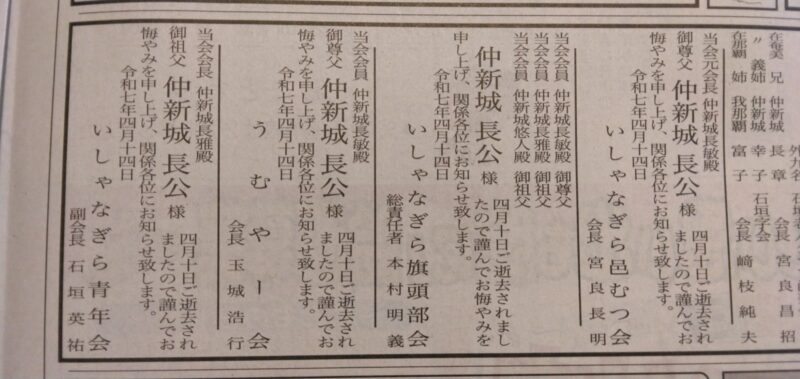 在奄美 兄 仲新城 長章
〃 義姉 仲新城 幸子
在那覇 姉 我那覇 富子
外九名
石垣字会
会長 宮良昌招
会長 﨑枝純夫
当会元会長 仲新城長敏殿
御尊父 仲新城 長公 様 四月十日ご逝去され
ましたので謹んでお
悔やみを申し上げ、関係各位にお知らせ致します。
令和七年四月十四日
いしゃなぎら邑むつ会
会長 宮良長明
当会会員 仲新城長敏殿 御尊父
当会会員 仲新城長雅殿 御祖父
当会会員 仲新城悠人殿 御祖父
仲新城 長公 様 四月十日ご逝去されまし
たので謹んでお悔やみを
申し上げ、関係各位にお知らせ致します。
令和七年四月十四日
いしゃなぎら旗頭部会
総責任者 本村明義
当会会員 仲新城長敏殿
御尊父 仲新城 長公 様 四月十日ご逝去され
ましたので謹んでお
悔やみを申し上げ、関係各位にお知らせ致します。
令和七年四月十四日
うむやー会
会長 玉城浩行
当会会長 仲新城長雅殿
御祖父 仲新城 長公 様 四月十日ご逝去され
ましたので謹んでお
悔やみを申し上げ、関係各位にお知らせ致します。
令和七年四月十四日
いしゃなぎら青年会
副会長 石垣英祐